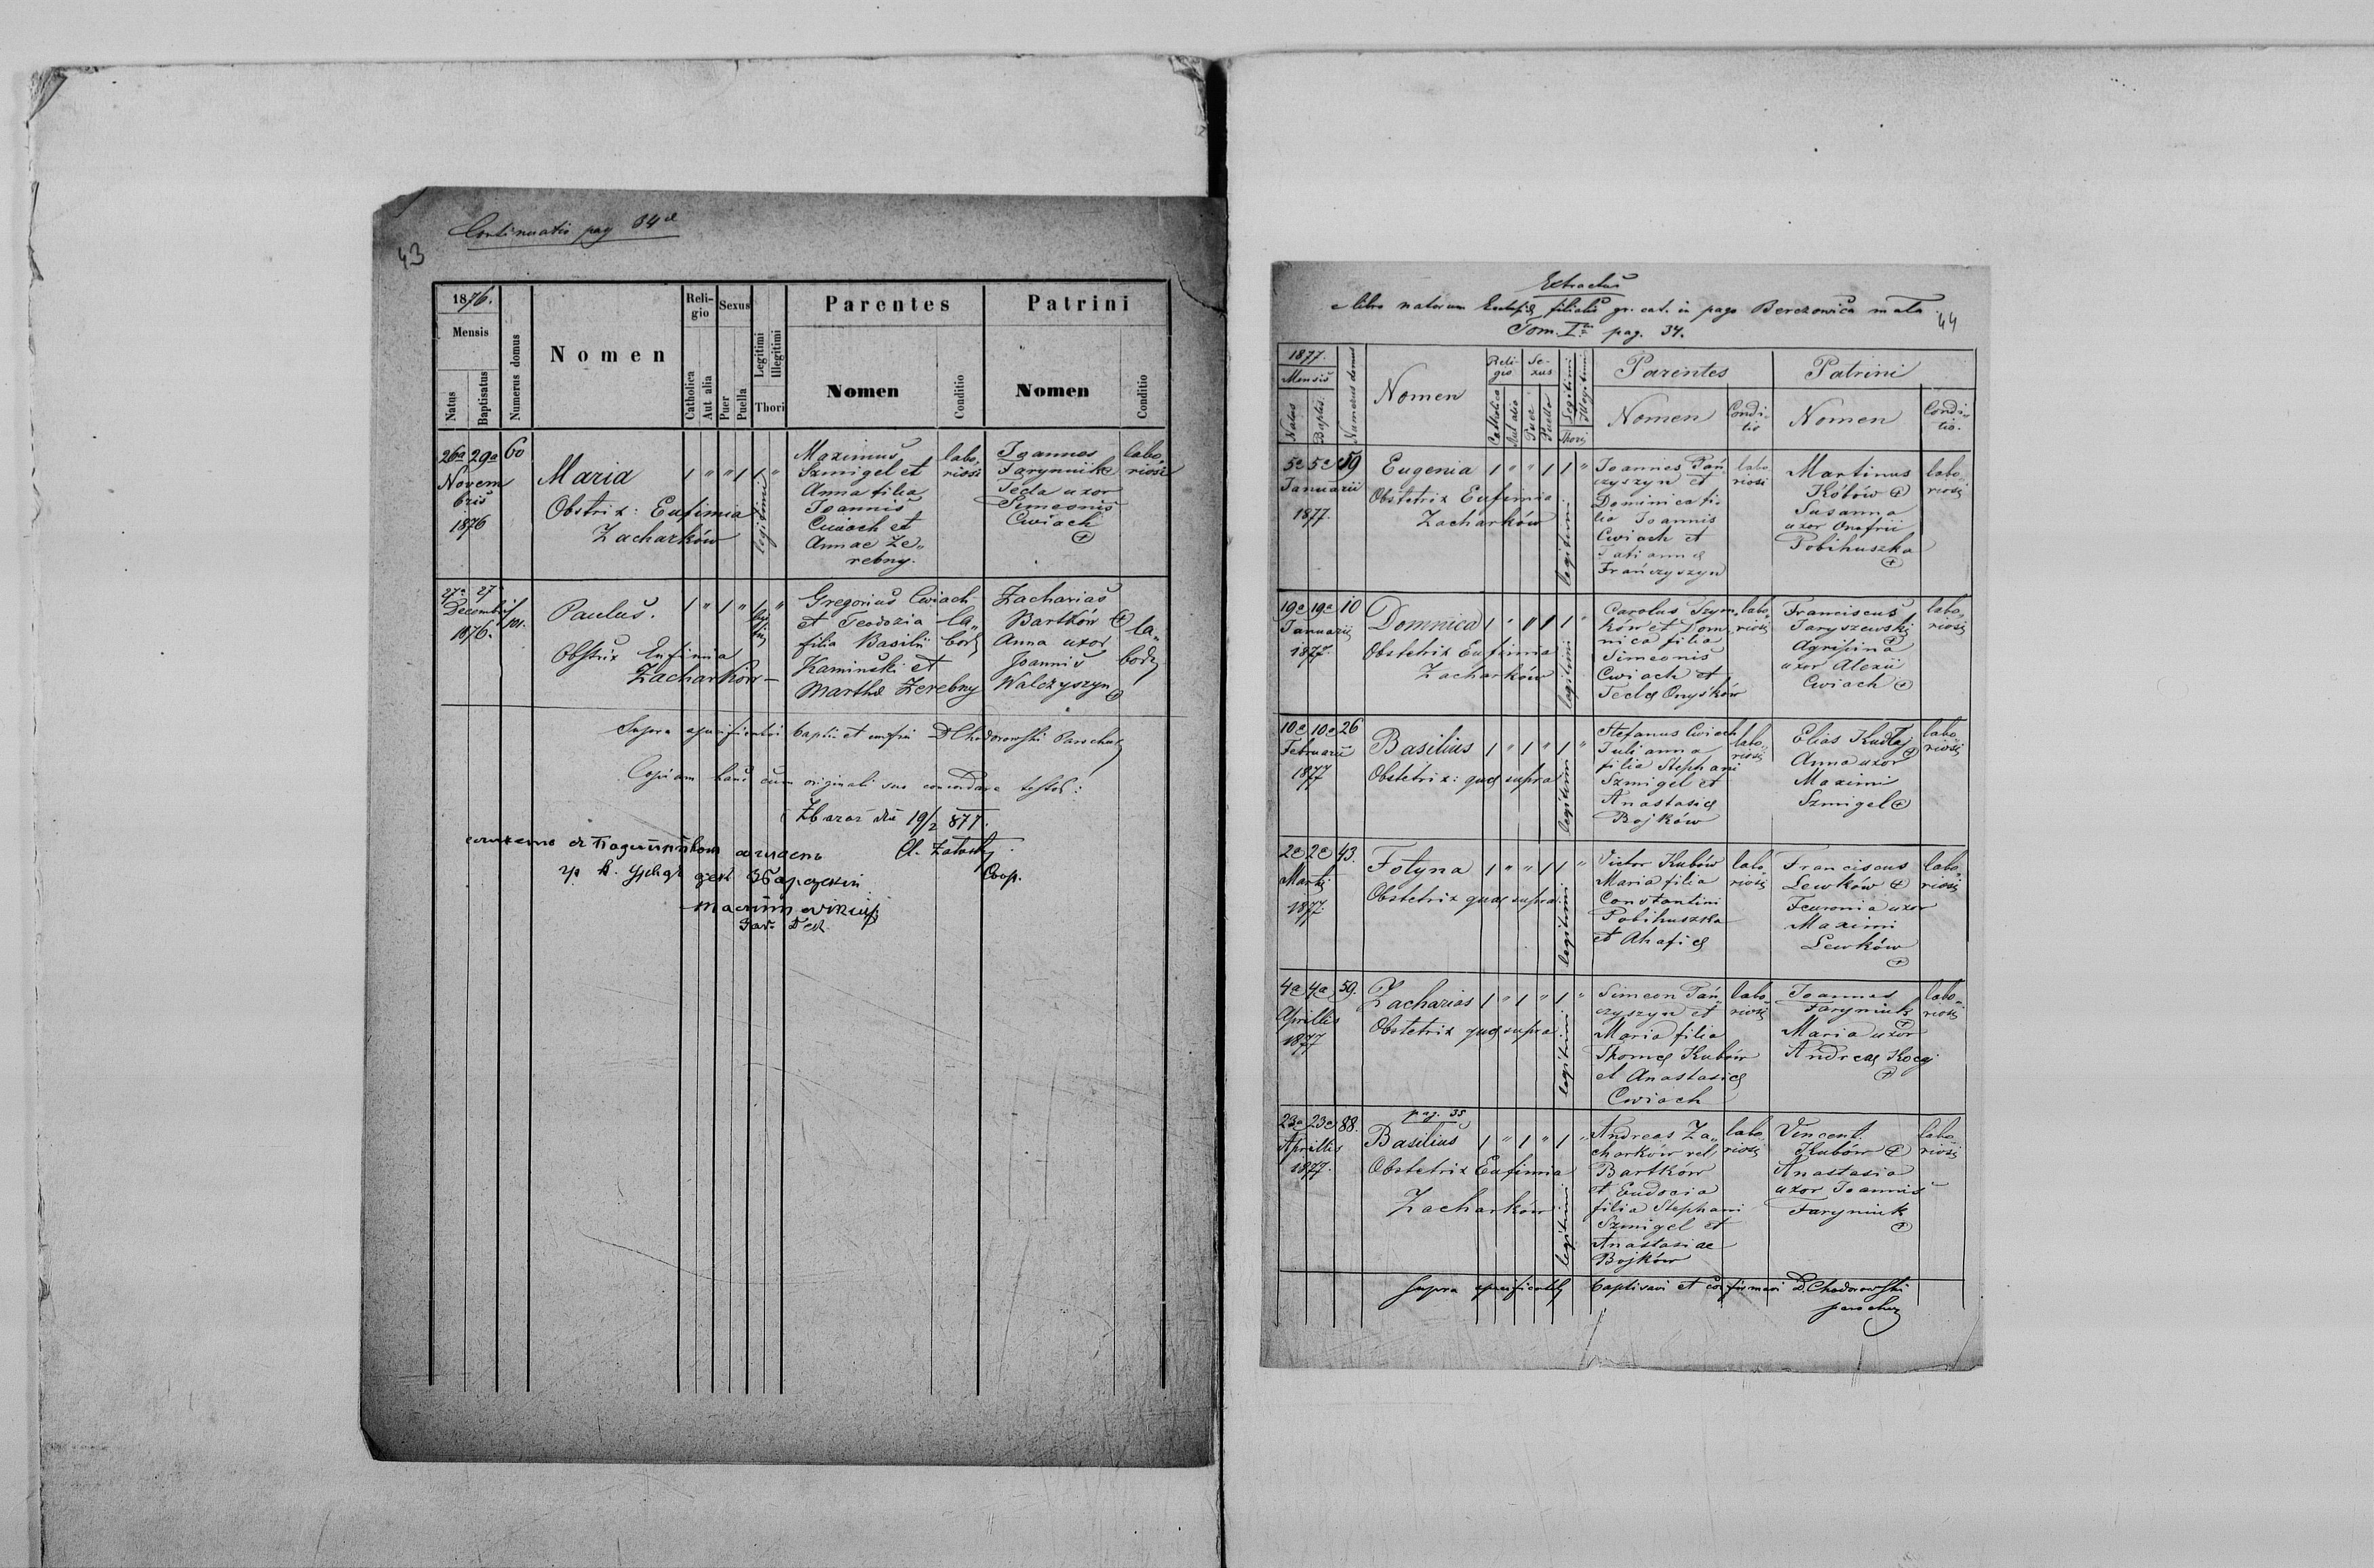 Continuatio pag 34
43
1876.
Mensis
Natus
Baptisatus
Numerus domus
Nomen
Religio
Catholica
Aut alia
Sexus
Puer
Puella
Legitimi
Illegitimi
Thori
Parentes
Nomen
Conditio
Patrini
Nomen
Conditio
26a 29a 60
Novem
bris
1876
Maria 1 " " 1 1 "
Obstrix: Eufimia
Zacharków
legitimi
Maximus
Szmigel et
Anna filia
Joannis
Cwiach et
Annae Ze„
rebny.
labo„
riosi
Joannes
Faryniuk
Tecla uxor
Simeonis
Cwiach
labo„
riosi
27a 27
Decembris 101.
1876.
Paulus. 1 " 1 " 1 "
Obstrix Eufimia
Zacharków
Gregorius Cwiach
et Teodozia
filia Basilii
Kaminski et
Marthae Zerebny
la„
bor
Zacharias
Bartków
Anna uxor
Joannis
Walczyszyn
la„
bor
Supra specificatos D Chodorowski Parochus
Copiam hanc cum originali suo concordare testor:
Zbaraz die 19/2 877.
Coop.
Extractus
e libro natorum Ecclesiae filialis gr. cat. in pago Berezowica mała
44
Tom. I pag. 34.
1877.
Mensis
Natus
Baptis.
Numerus domus
Nomen
Religio
Catholica
Aut alia
Sexus
Puer
Puella
Legitimi
Illegitimi
Thori
Parentes
Nomen
Conditio
Patrini
Nomen
Conditio.
5a 5a 59
Januarii
1877.
Eugenia 1 " " 1 1 "
Obstetrix Eufimia
Zacharków
legitimi
Joannes Pań
czyszyn et
Dominica fi
lia Joannis
Cwiach et
Tatiannae
Frańczyszyn
labo
riosi
Martinus
Kółów
Susanna
uxor Onofrii
Pobihuszka
labo
riosi
19a 19a 10
Januarii
1877.
Domnica 1 " " 1 1 "
Obstetrix Eufimia
Zacharków
legitimi
Carolus Szym
ków et Dom
nica filia
Simeonis
Cwiach et
Teclae Onyśków
labo„
riosi
Franciscus
Taryszewski
Agripina
uxor Alexii
Cwiach
labo„
riosi
10a 10a 26
Februarii
1877
Basilius 1 " 1 " 1 "
Obstetrix: quae supra
legitimi
Stefanus Cwiach
Julianna
filia Stephani
Szmigel et
Anastasiae
Bojków
labo„
riosi
Elias Kudłaj
Anna uxor
Maximi
Szmigel
labo
riosi
2a 2a 43.
Martii
1877.
Fotyna 1 " " 1 1 "
Obstetrix quae supra
legitimi
Victor Kubów
Maria filia
Constantini
Pobihuszka
et Ahafiae
labo
riosi
Franciscus
Lewków
Feuronia uxor
Maximi
Lewków
labo„
riosi
4a 4a 59.
Aprillis
1877
Zacharias 1 " 1 " 1 "
Obstetrix quae supra
legitimi
Simeon Pań„
czyszyn et
Maria filia
Thomae Kubów
et Anastasiae
Cwiach
labo„
riosi
Joannes
Faryniuk
Maria uxor
Andreae Kocaj
labo„
riosi
pag. 35
23a 23a 88.
Aprillis
1877.
Basilius 1 " 1 " 1 "
Obstetrix Eufimia
Zacharków
legitimi
Andreas Za„
charków vel
Bartków
et Eudocia
filia Stephani
Szmigel et
Anastasiae
Bojków
labo
riosi
Vincent.
Kubów
Anastasia
uxor Joannis
Faryniuk
labo
riosi
Supra specificatos baptisavi et confirmavi D. Chodorowski
parochus